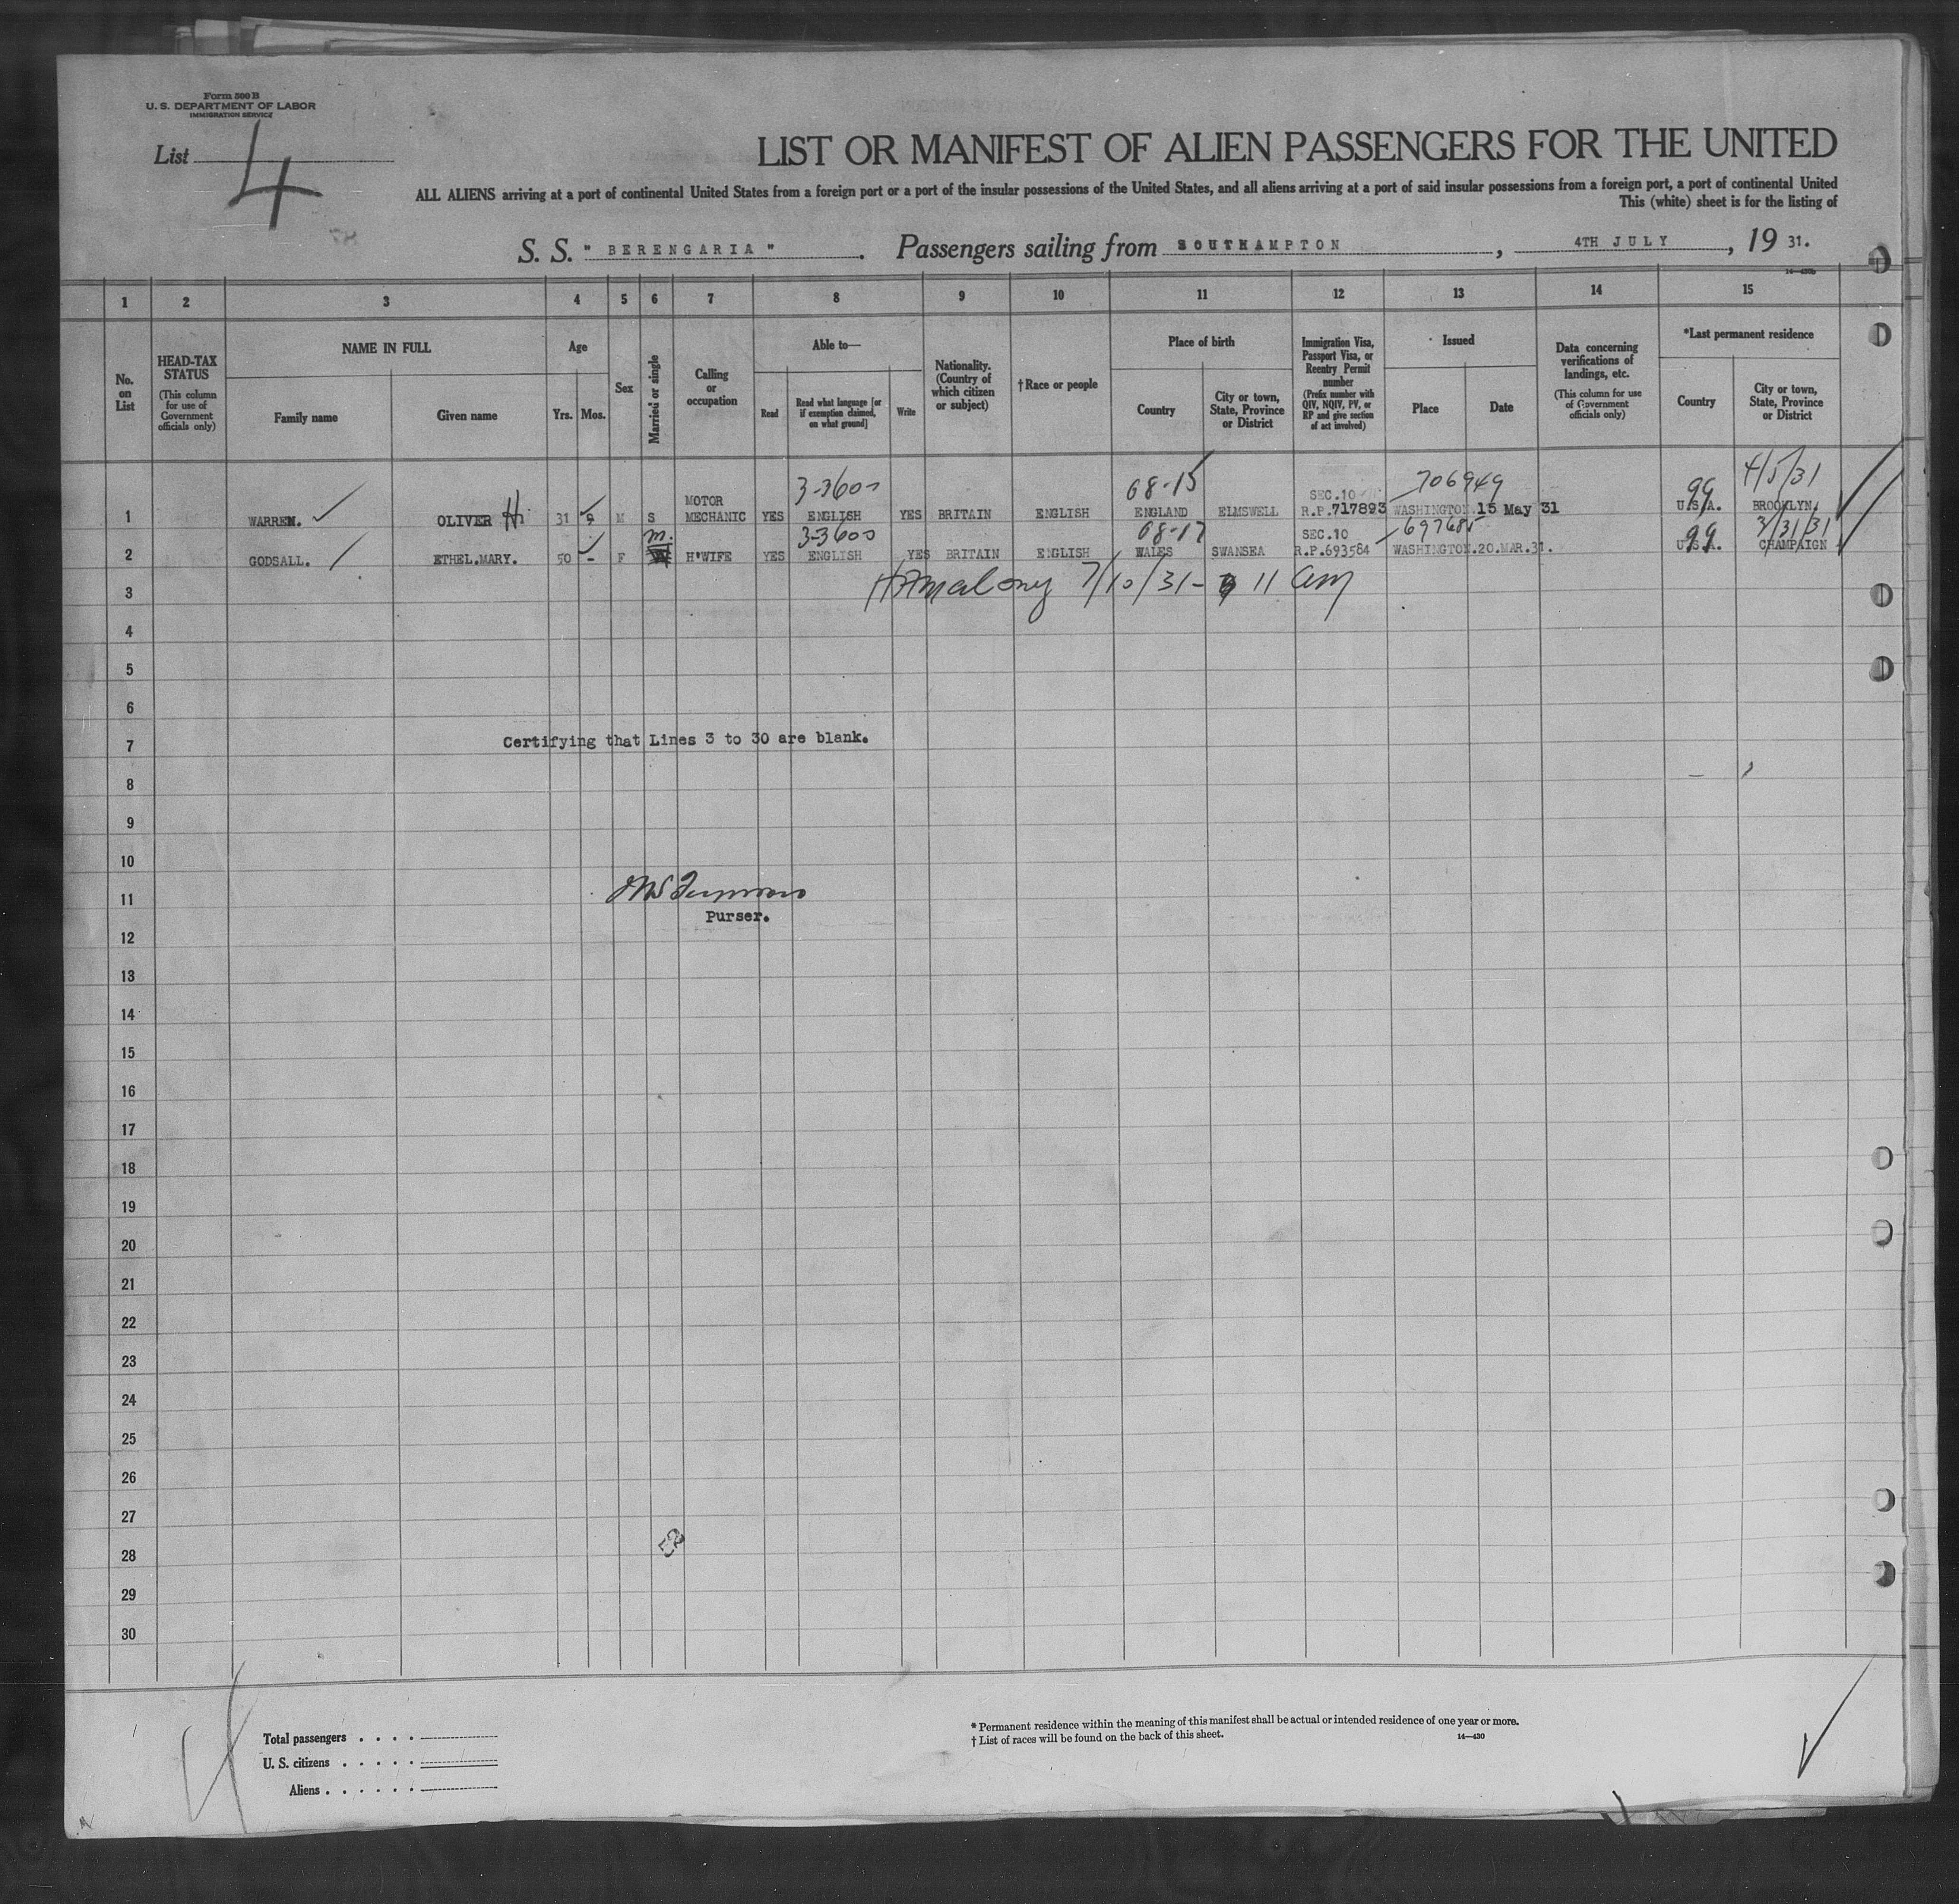 Form 500 B
U. S. DEPARTMENT OF LABOR
IMMIGRATION SERVICE
List 4
LIST OR MANIFEST OF ALIEN PASSENGERS FOR THE UNITED
ALL ALIENS arriving at a port of continental United States from a foreign port or a port of the insular possessions of the United States, and all aliens arriving at a port of said insular possessions from a foreign port, a port of continental United
This (white) sheet is for the listing of
S. S. " BERENGARIA " . Passengers sailing from SOUTHAMPTON , 4TH JULY , 19 31.
1 2 3 4 5 6 7 8 9 10 11 12 13 14 15
No. on List
HEAD-TAX STATUS (This column for use of Government officials only)
NAME IN FULL
Family name
Given name
Age
Yrs. Mos.
Sex
Married or single
Calling or occupation
Able to—
Read
Read what language [or if exemption claimed, on what ground]
Write
Nationality. (Country of which citizen or subject)
†Race or people
Place of birth
Country
City or town, State, Province or District
Immigration Visa, Passport Visa, or Reentry Permit number (Prefix number with QIV, NQIV, PV, or RP and give section of act involved)
Issued
Place
Date
Data concerning verifications of landings, etc. (This column for use of Government officials only)
*Last permanent residence
Country
City or town, State, Province or District
3-3600 68-15 706949 99 4/5/31
MOTOR SEC.10
1 WARREN. OLIVER 31 9 M S MECHANIC YES ENGLISH YES BRITAIN ENGLISH ENGLAND ELMSWELL R.P.717893 WASHINGTON 15 May 31 U.S.A. BROOKLYN
m. 3-3600 08-17 SEC.10 697685 99 3/31/31
2 GODSALL. ETHEL.MARY. 50 - F H'WIFE YES ENGLISH YES BRITAIN ENGLISH WALES SWANSEA R.P.693584 WASHINGTON.20.MAR.31. U.S.A. CHAMPAIGN
3 Maloney 7/10/31 - 11 am
4
5
6
7 Certifying that Lines 3 to 30 are blank.
8
9
10
11
Purser.
12
13
14
15
16
17
18
19
20
21
22
23
24
25
26
27
28
29
30
Total passengers . . . .
U. S. citizens . . . . .
Aliens . . . . . .
* Permanent residence within the meaning of this manifest shall be actual or intended residence of one year or more.
† List of races will be found on the back of this sheet.
14—430